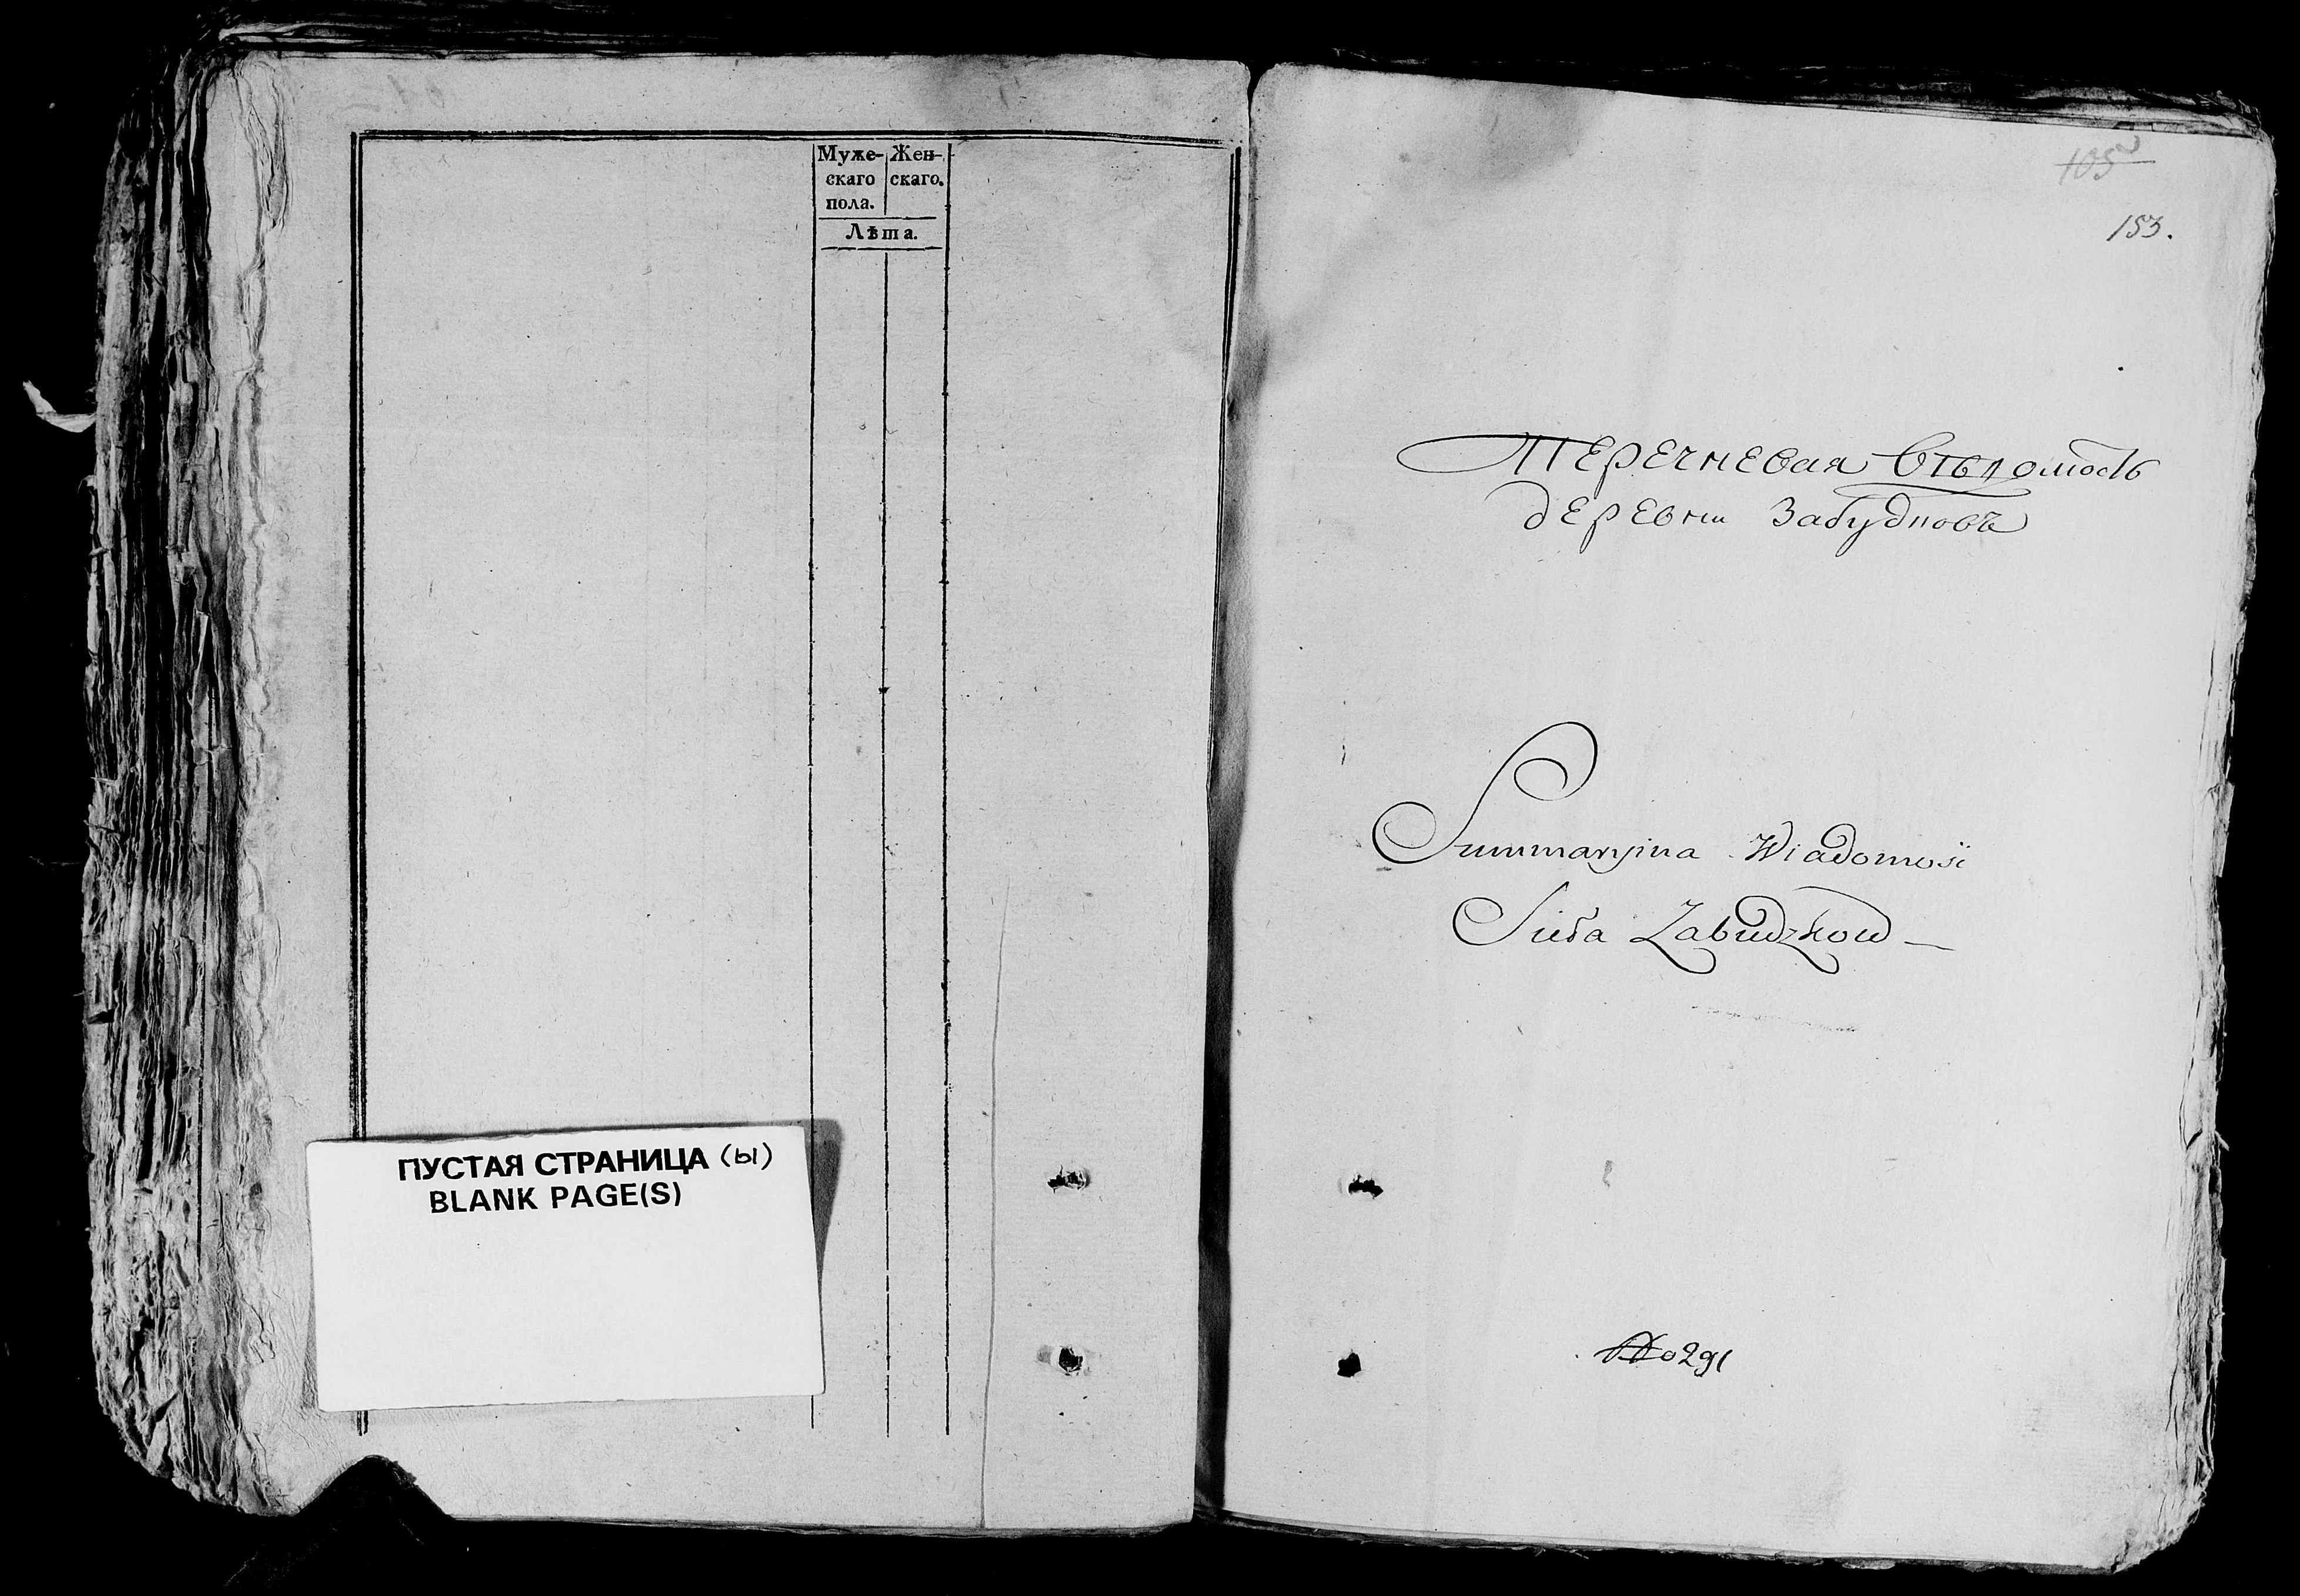 Муже- Жен-
скаго скаго.
пола.
Лѣта.
ПУСТАЯ СТРАНИЦА (ы)
BLANK PAGE(S)
105
153.
Перечневая вѣдомость
деревни Забудковъ
Summaryina Wiadomość
Sioła Zabudzkow
No 291